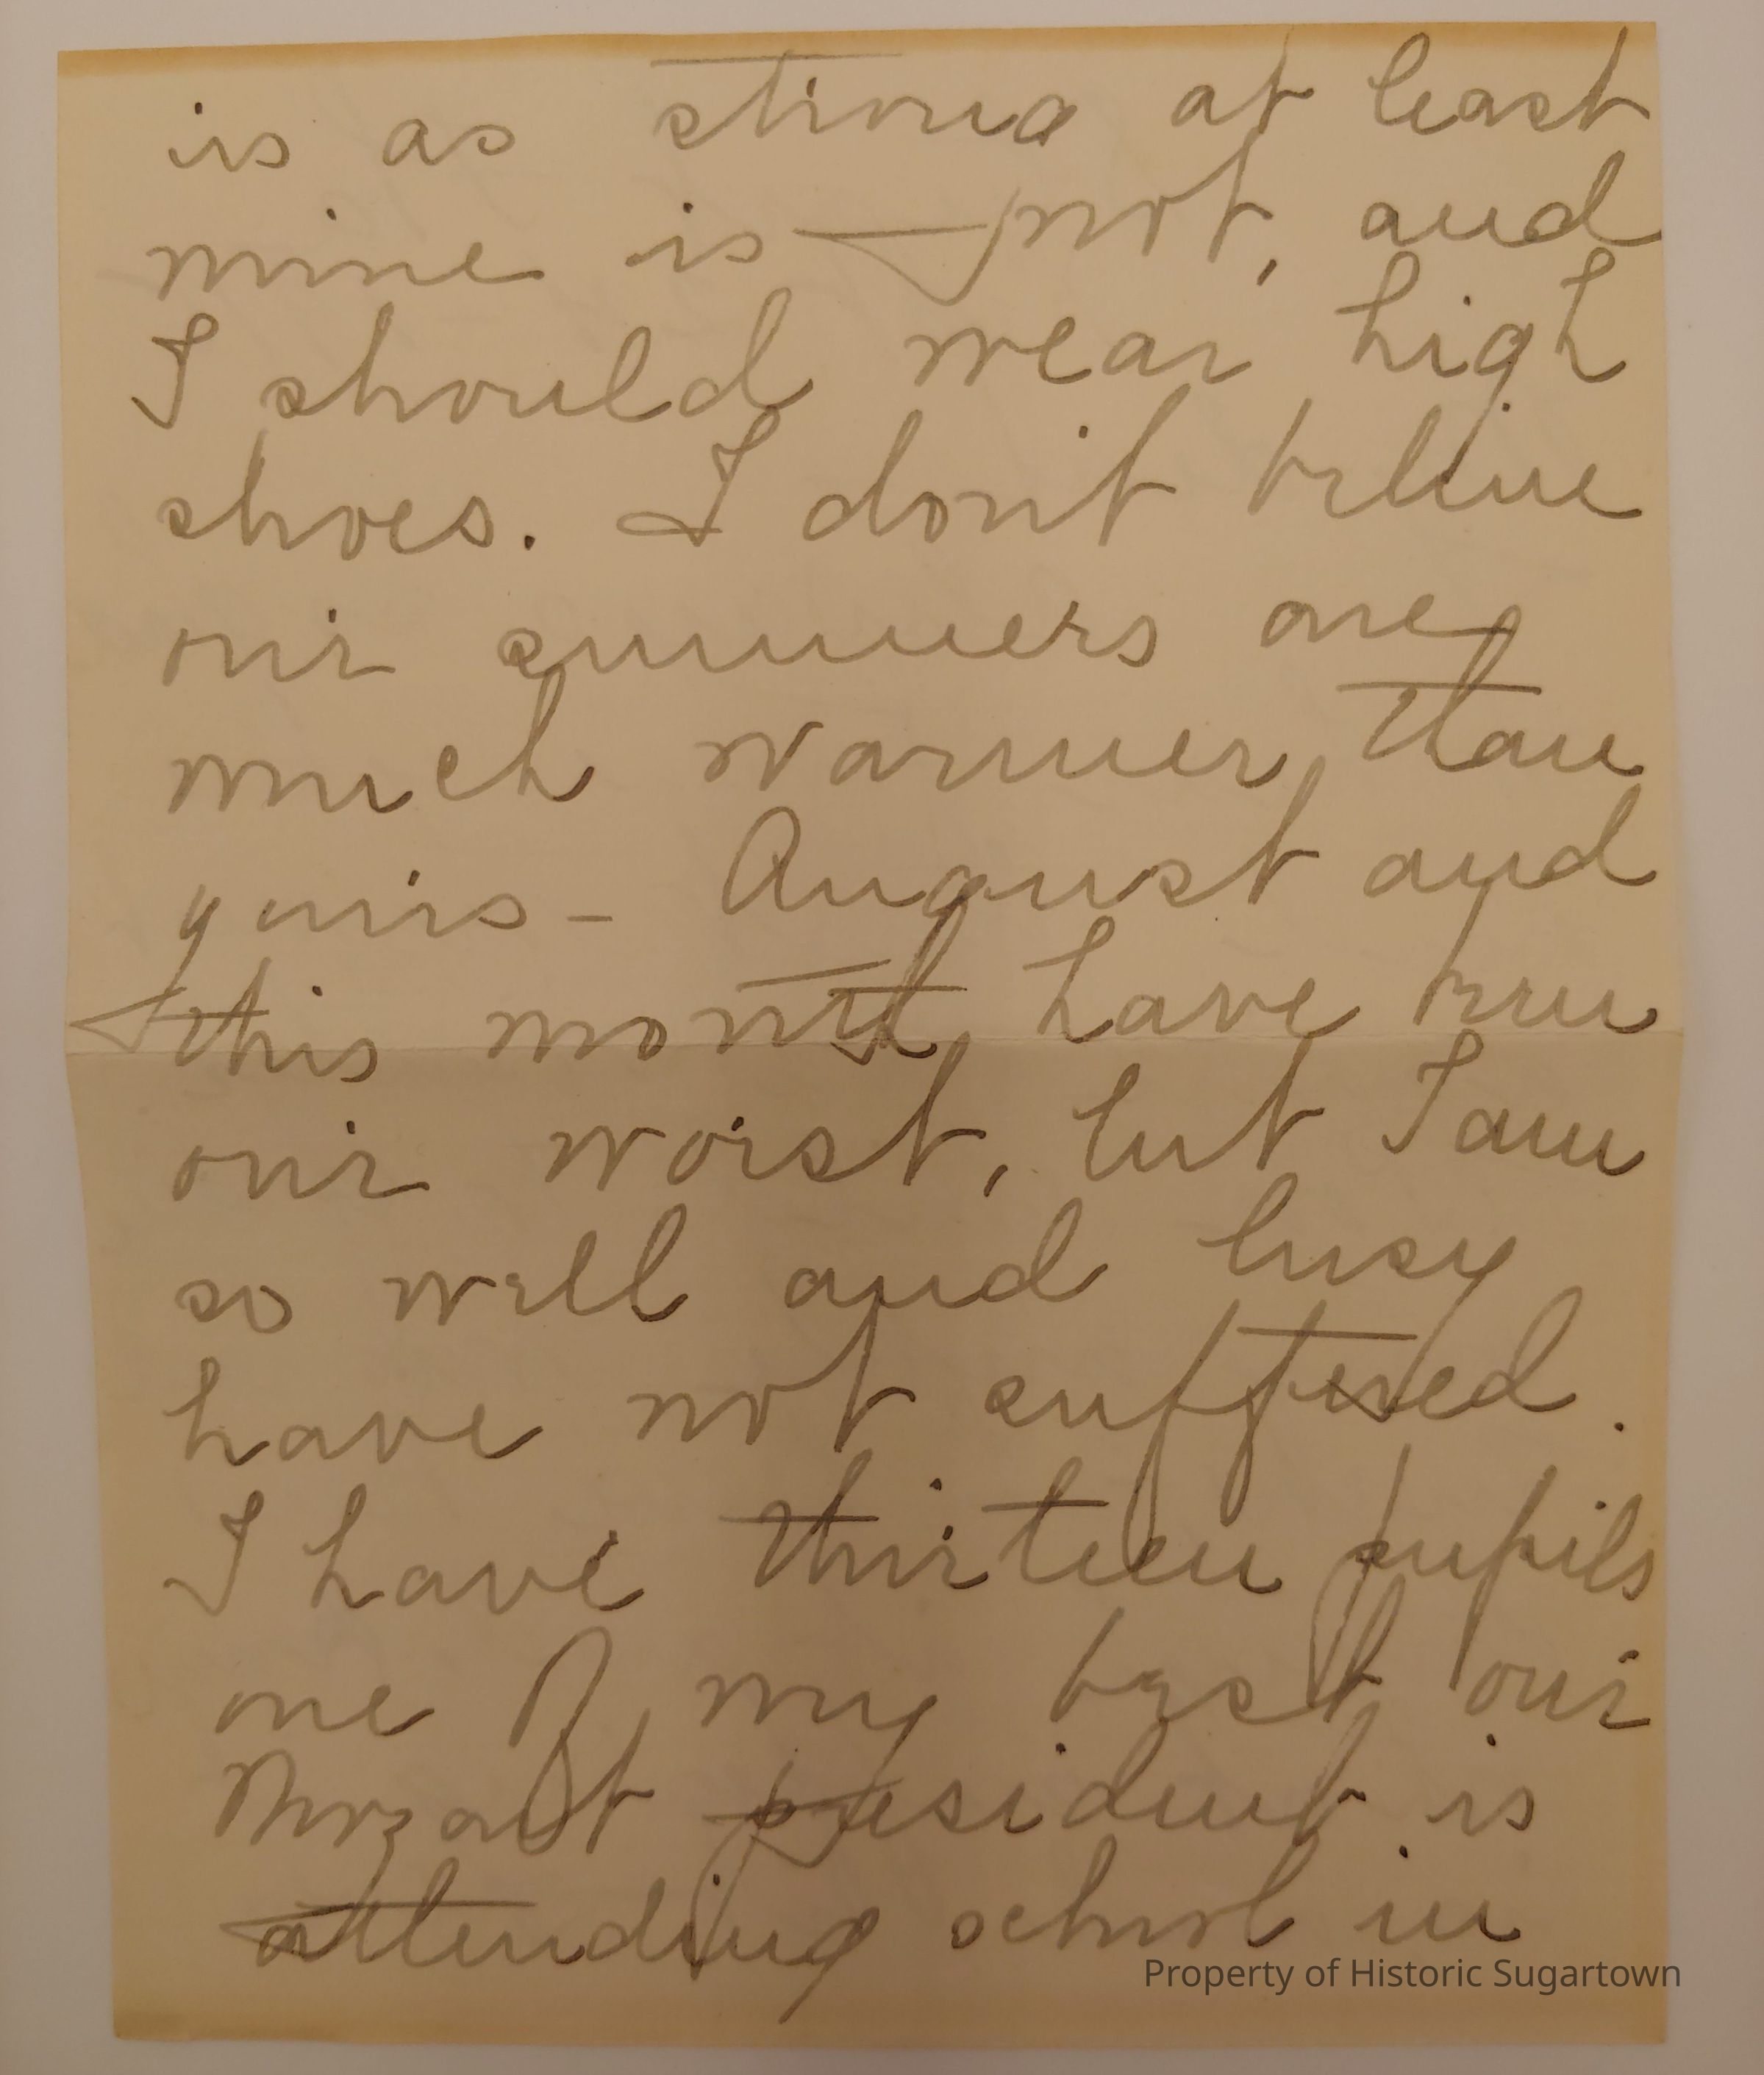 is as strong at least
mine is not, and
I should wear high
shoes. I don't believe
our summers are
much warmer than
yours - August and
this month have been
our worst, but I am
so well and busy
have not suffered.
I have thirteen pupils
one of my best our
Mozart president is
attending school in
Property of Historic Sugartown